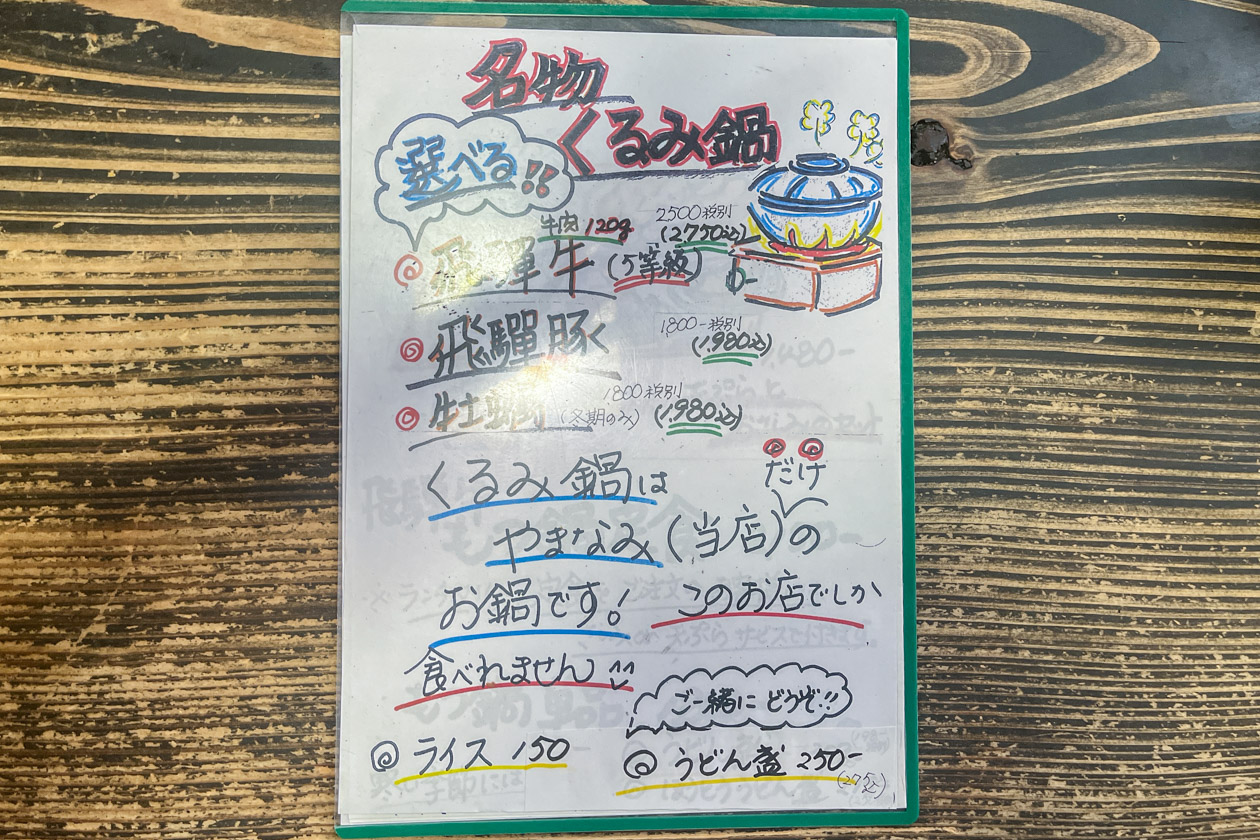 名物
くるみ鍋
選べる!!
牛肉 120g 2500税別
(2750込)
◎ 飛騨牛 (5等級)
1800-税別
◎ 飛騨豚 (1,980込)
1800税別
◎ 牡 (冬期のみ) (1,980込)
くるみ鍋は だけ
やまなみ(当店)の
お鍋です! このお店でしか
食べれません
ご一緒に どうぞ!!
◎ ライス 150
◎ うどん 250-
(275込)